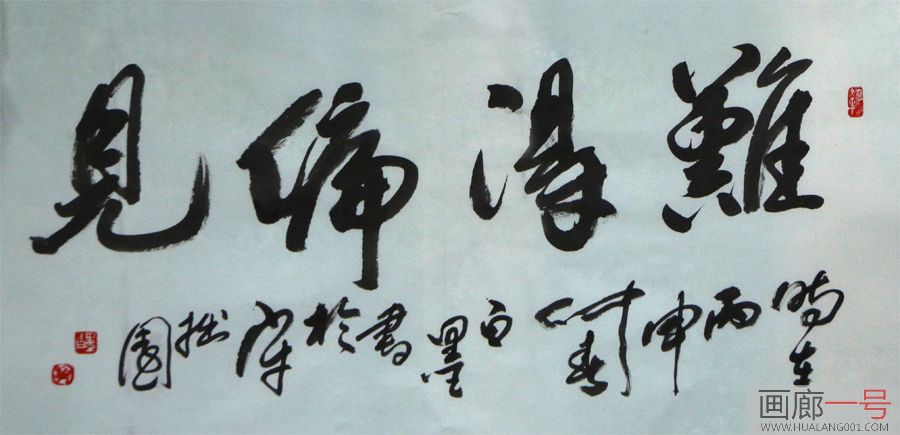 難得偏見
時在丙申仲春白墨書於拙園
画廊一号
WWW.HUALANG001.COM